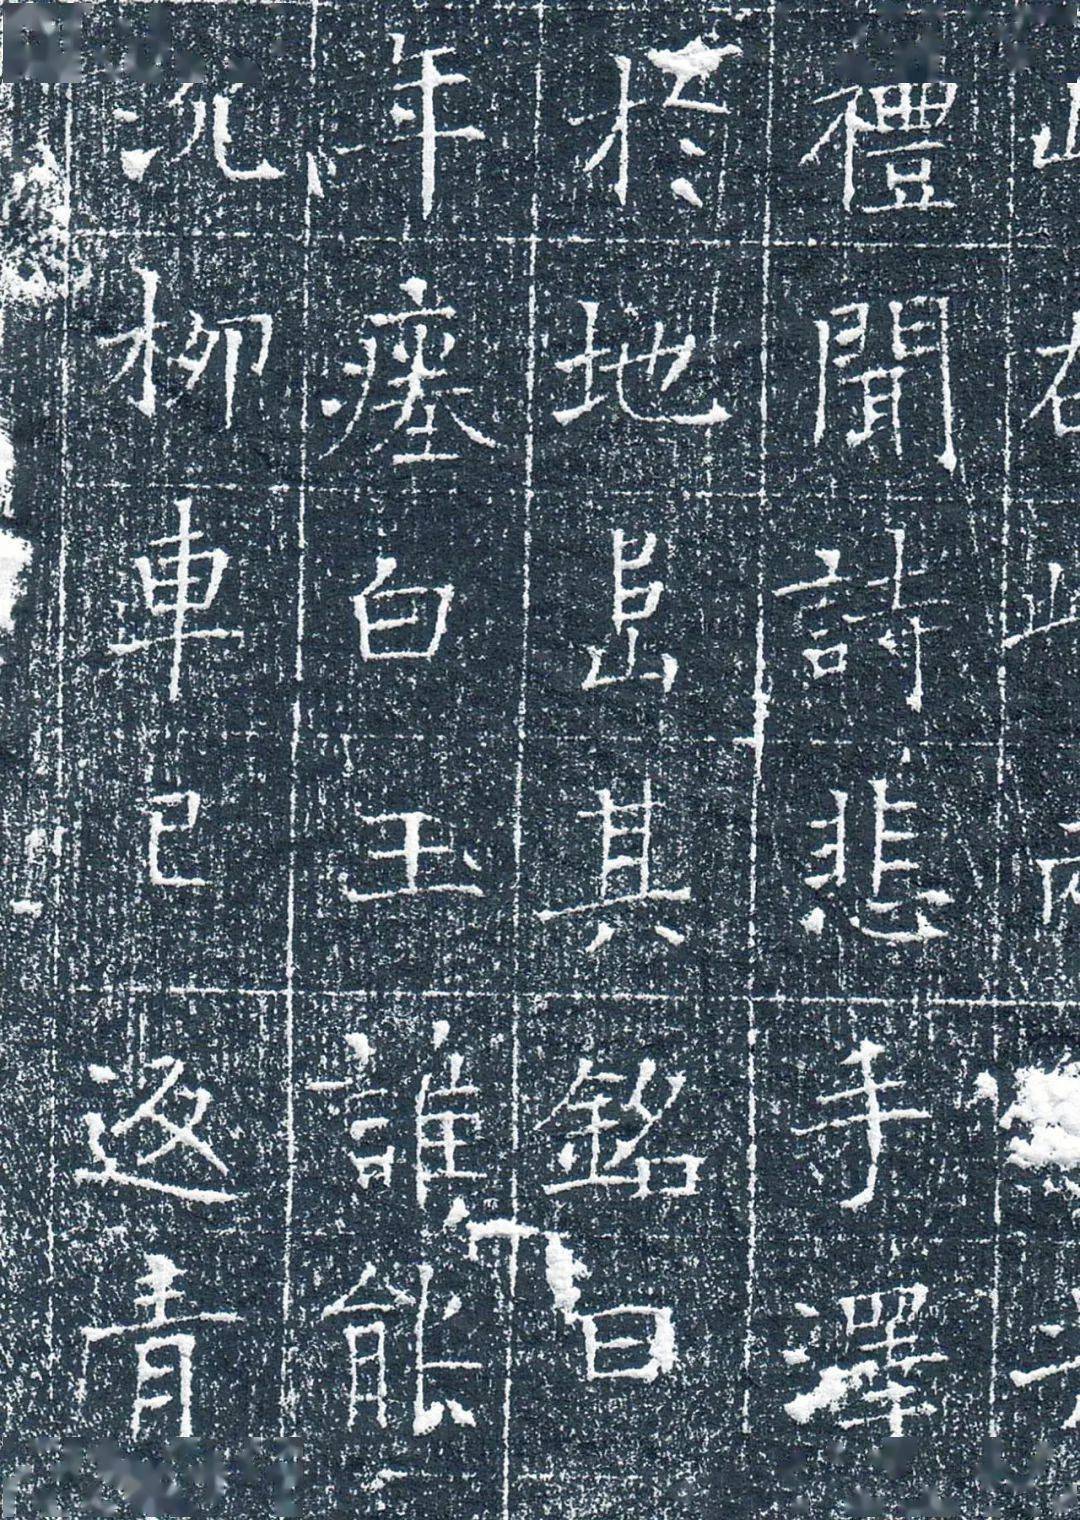 禮聞詩悲手澤
於地𨸏其銘曰
年瘞白玉誰能
況柳車已返青